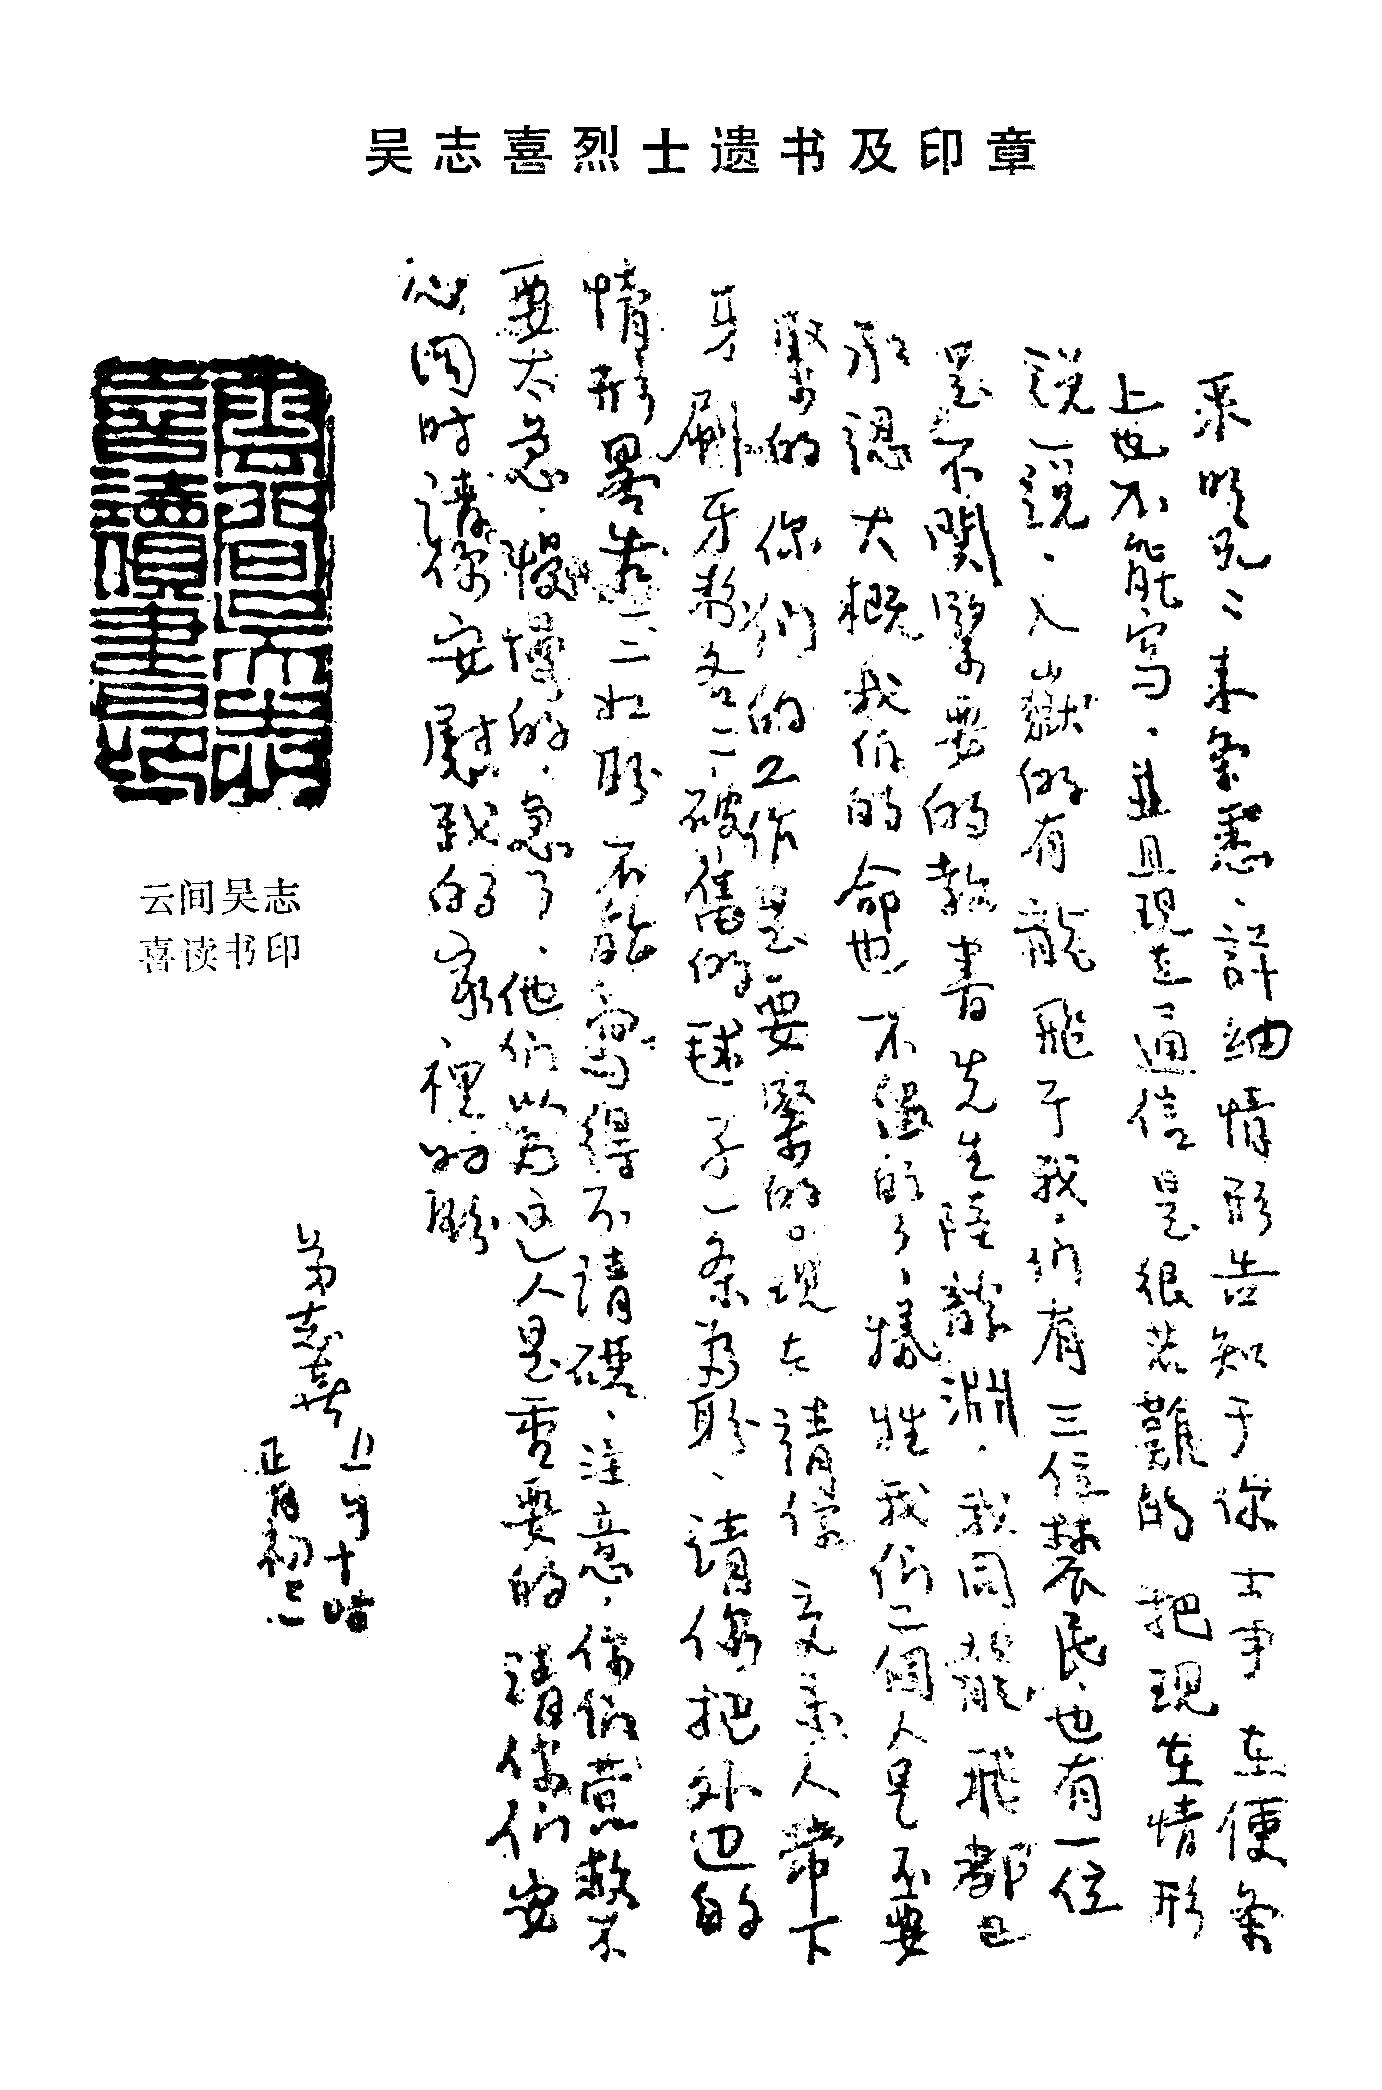 吴志喜烈士遗书及印章
来条悉、詳細情形告知于你 士事 在便条
上也不能寫、並且現在通信是很苦難的 把現在情形
説一説、入獄的有龍飛于我、們有三位農民、也有一位
是不関緊要的教書先生陸龍淵、我同龍飛都已
承認大概我們的命也不過的了、犧牲我們二個人是不要
緊的 你們的工作是要緊的。現在請你交来人帶下
牙刷牙粉各二、破舊的毯子一条為盼、請你把外边的
情形畧告一二為盼 不能寫得不清礎、注意、你們營救不
要太急、慢慢的、急了、他們以為这人是重要的 請你們安
心同時請你安慰我的家裡 為盼
弟志喜
上午十時
正月初二
雲間吳志
喜讀書印
云间吴志
喜读书印